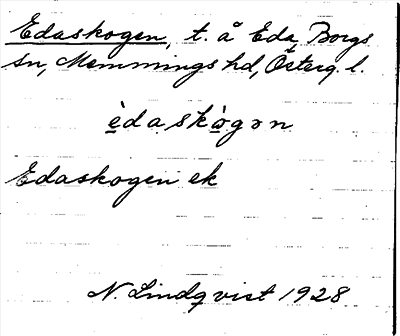 Edaskogen, t. å Eda, Borgs
sn, Memmings hd, Österg. l.
èdaskògən
Edaskogen ek
N. Lindqvist 1928